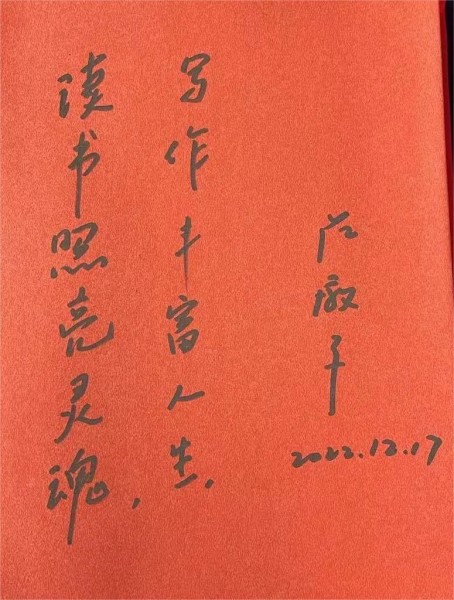 读书照亮灵魂,
写作丰富人生.
范墩子
2022.12.17